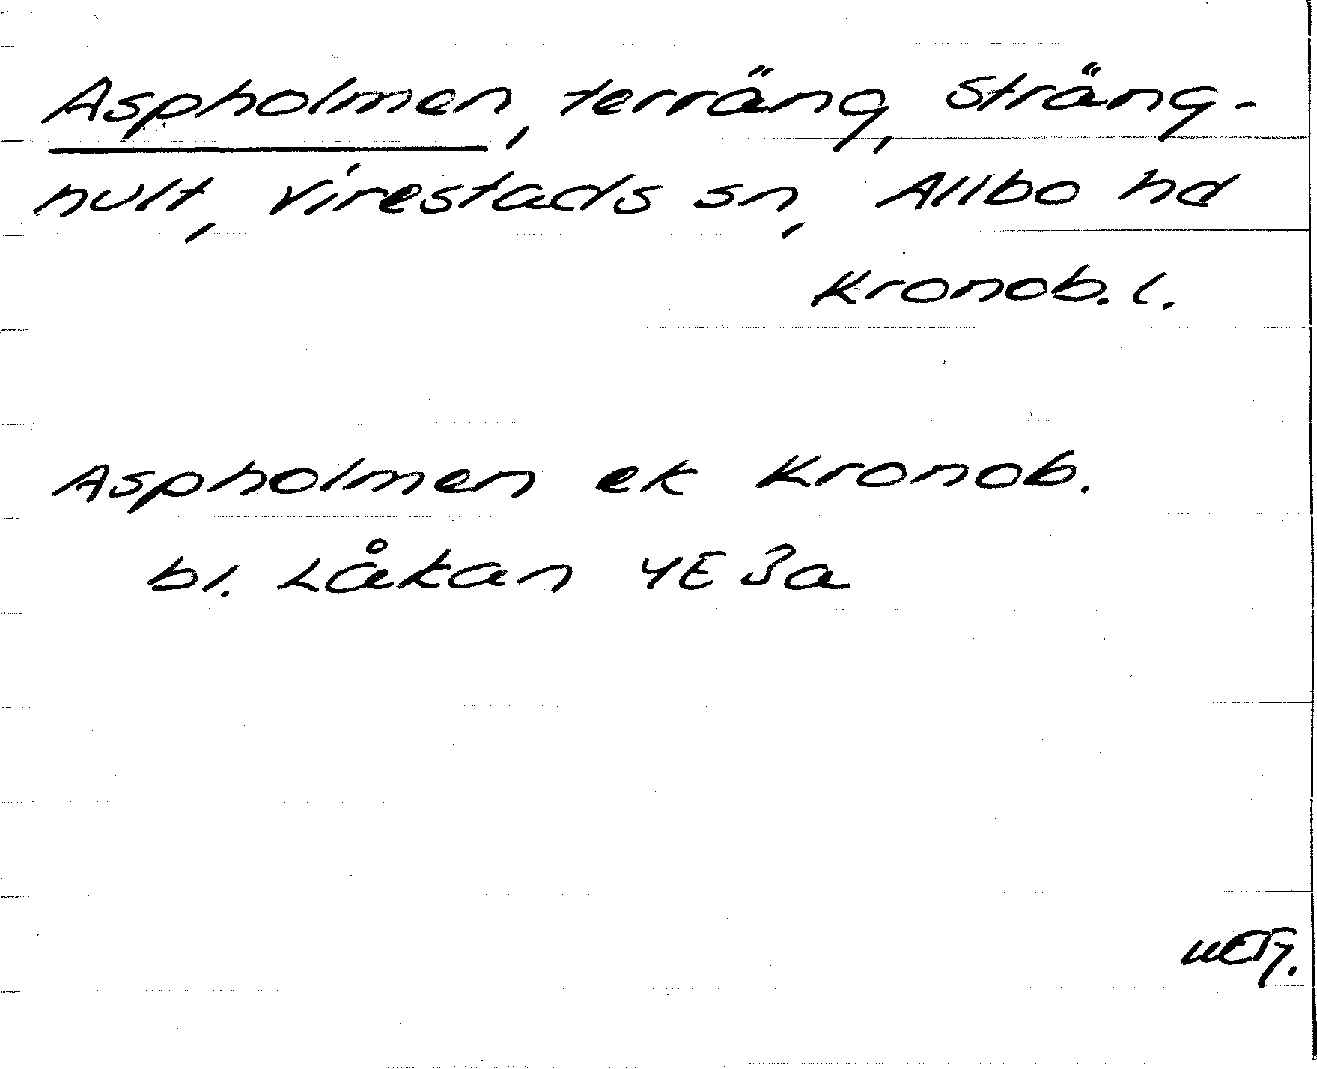 Aspholmen, terräng, Sträng-
hult, Virestads sn, Allbo hd
Kronob. l.
Aspholmen ek Kronob.
bl. Låkan 4E 3a